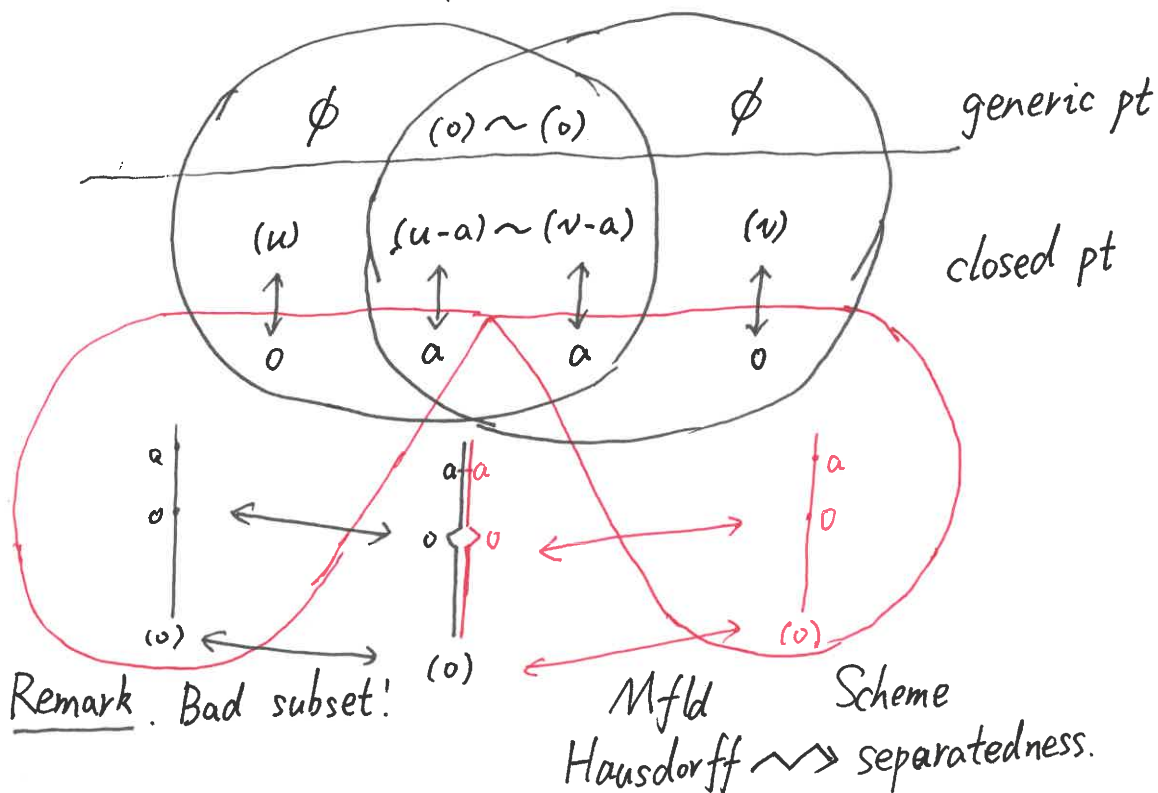 ϕ (0) ~ (0) ϕ generic pt
(u) (u-a) ~ (v-a) (v) closed pt
0 a a 0
a a a a
0 0 0 0
(0) (0) (0)
Remark. Bad subset! Mfld Scheme
Hausdorff ⇝ separatedness.